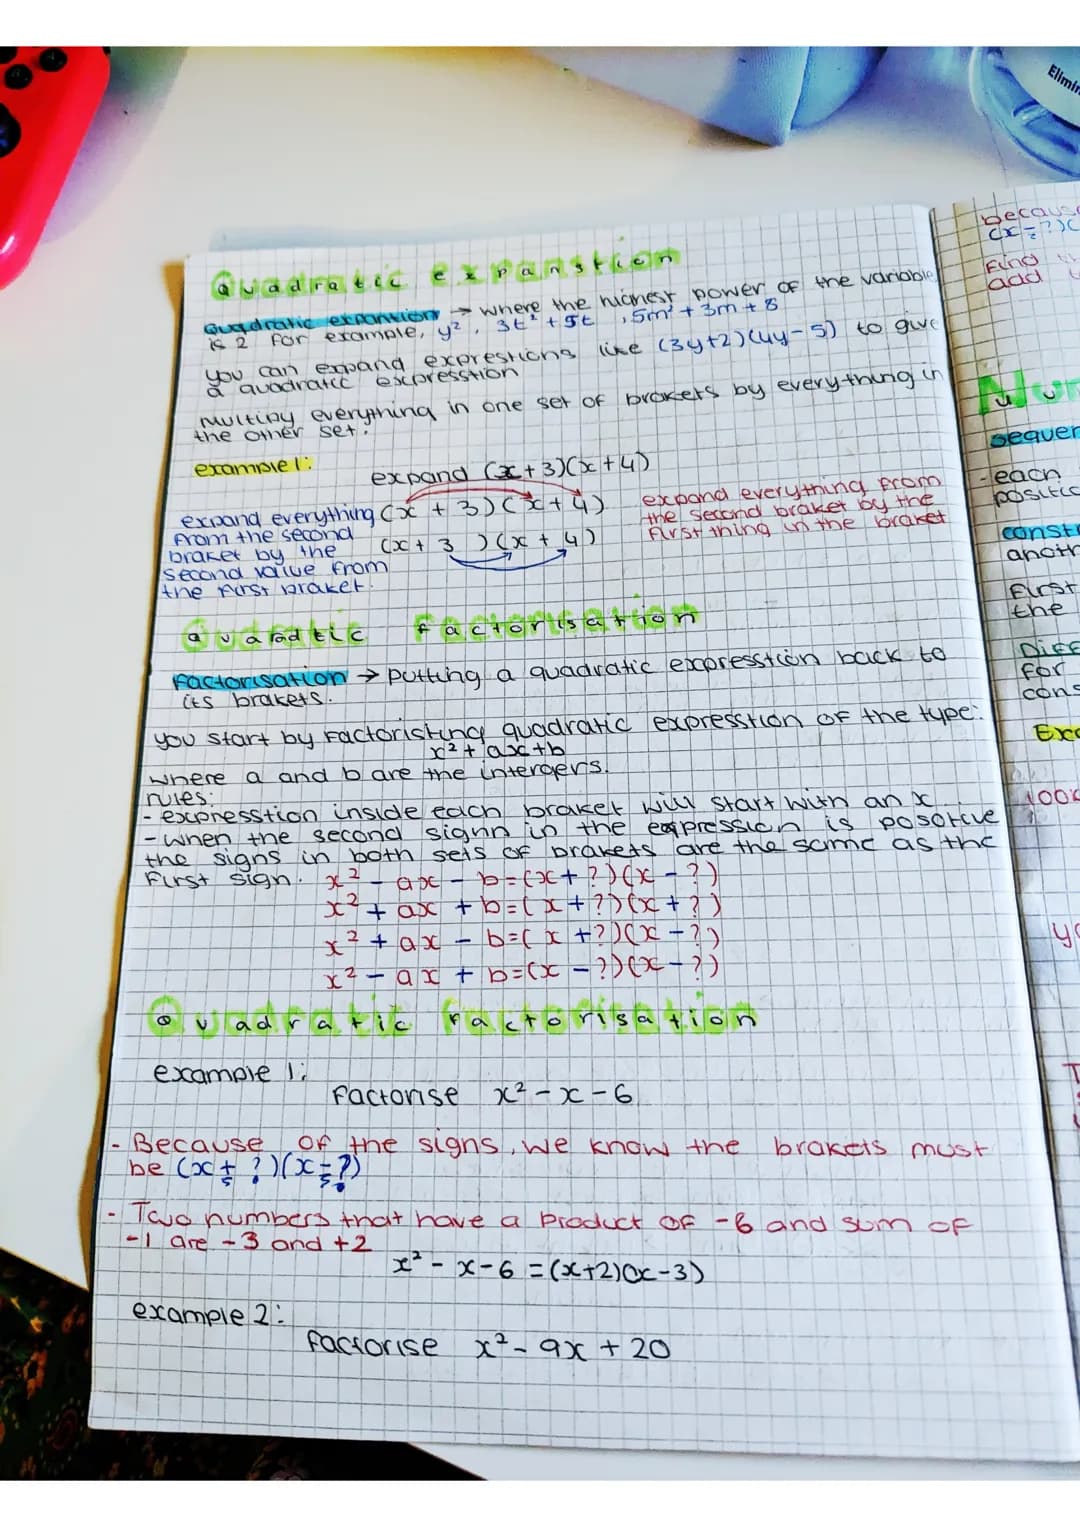 Elimin
Quadratic expanstion
Quadratic expantion → where the highest power of the variable
is 2 for example, y², 3t² + 5t, 5m² + 3m + 8
you can expand exprestions like (3y+2)(4y-5) to give
a quadratic expresstion
multiply everything in one set of brakets by everything in
the other set.
example 1:
expand (x+3)(x+4)
expand everything
from the second
braket by the
second value from
the first braket.
(x + 3)(x + 4)
(x + 3)(x + 4)
expand everything from
the second braket by the
first thing in the braket
Quaradtic Factorisation
Factorisation → putting a quadratic expresstion back to
its brakets.
you start by factoristing quadratic expresstion of the type:
x² + ax + b
where a and b are the intergers.
rules:
- expresstion inside each braket will start with an x
- when the second signn in the expression is posotive
the signs in both sets of brakets are the same as the
first sign.
x² - ax - b = (x + ?)(x - ?)
x² + ax + b = (x + ?)(x + ?)
x² + ax - b = (x + ?)(x - ?)
x² - ax + b = (x - ?)(x - ?)
Quadratic factorisation
example 1:
Factorise x² - x - 6
- Because of the signs, we know the brakets must
be (x + ?)(x - ?)
- Two numbers that have a product of -6 and sum of
-1 are -3 and +2
x² - x - 6 = (x+2)(x-3)
example 2:
factorise x² - 9x + 20
because
Find
add
Num
sequen
- each
positio
consta
anoth
First
the
Diff
for
cons
Exa
look
yo